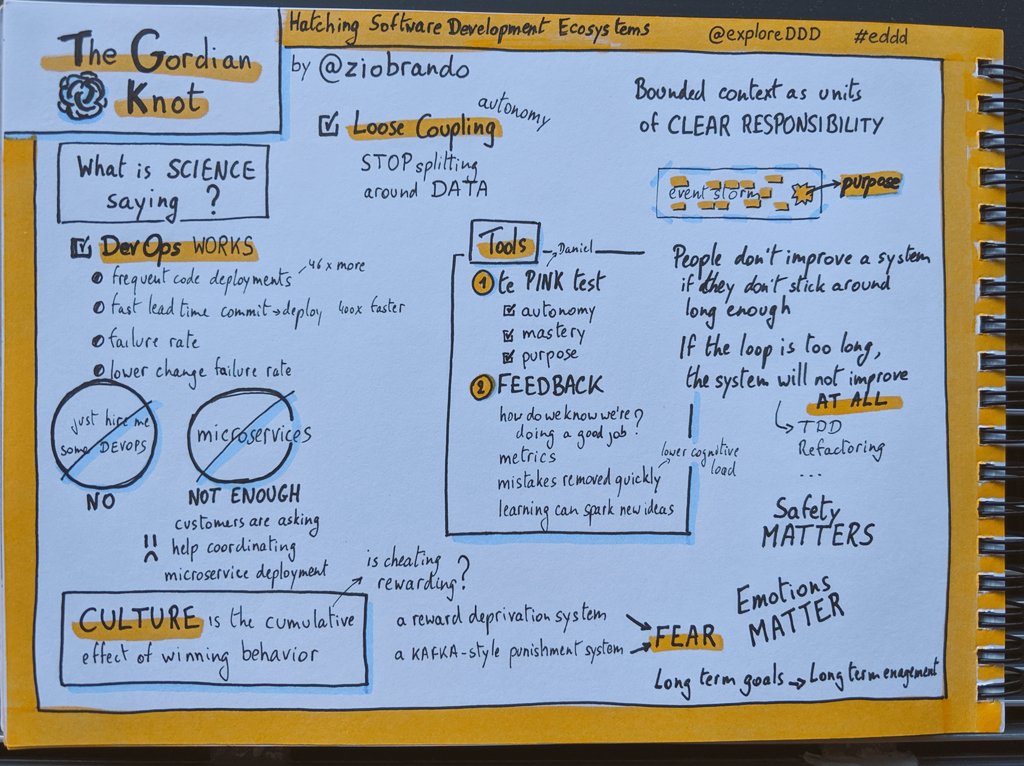 The Gordian
Knot
Hatching Software Development Ecosystems
@exploreDDD #eddd
by @ziobrando
What is SCIENCE
saying ?
DevOps WORKS
frequent code deployments 46x more
fast lead time commit → deploy 400x faster
failure rate
lower change failure rate
just hire me
some DEVOPS
NO
microservices
NOT ENOUGH
customers are asking
help coordinating
microservice deployment
CULTURE is the cumulative
effect of winning behavior
is cheating
rewarding?
Loose Coupling autonomy
STOP splitting
around DATA
Tools Daniel
1 te PINK test
autonomy
mastery
purpose
2 FEEDBACK
how do we know we're
doing a good job?
metrics
mistakes removed quickly
lower cognitive
load
learning can spark new ideas
a reward deprivation system
a KAFKA-style punishment system
FEAR
Bounded context as units
of CLEAR RESPONSIBILITY
event storm
purpose
People don't improve a system
if they don't stick around
long enough
If the loop is too long,
the system will not improve
AT ALL
TDD
Refactoring
...
Safety
MATTERS
Emotions
MATTER
Long term goals → Long term enagement